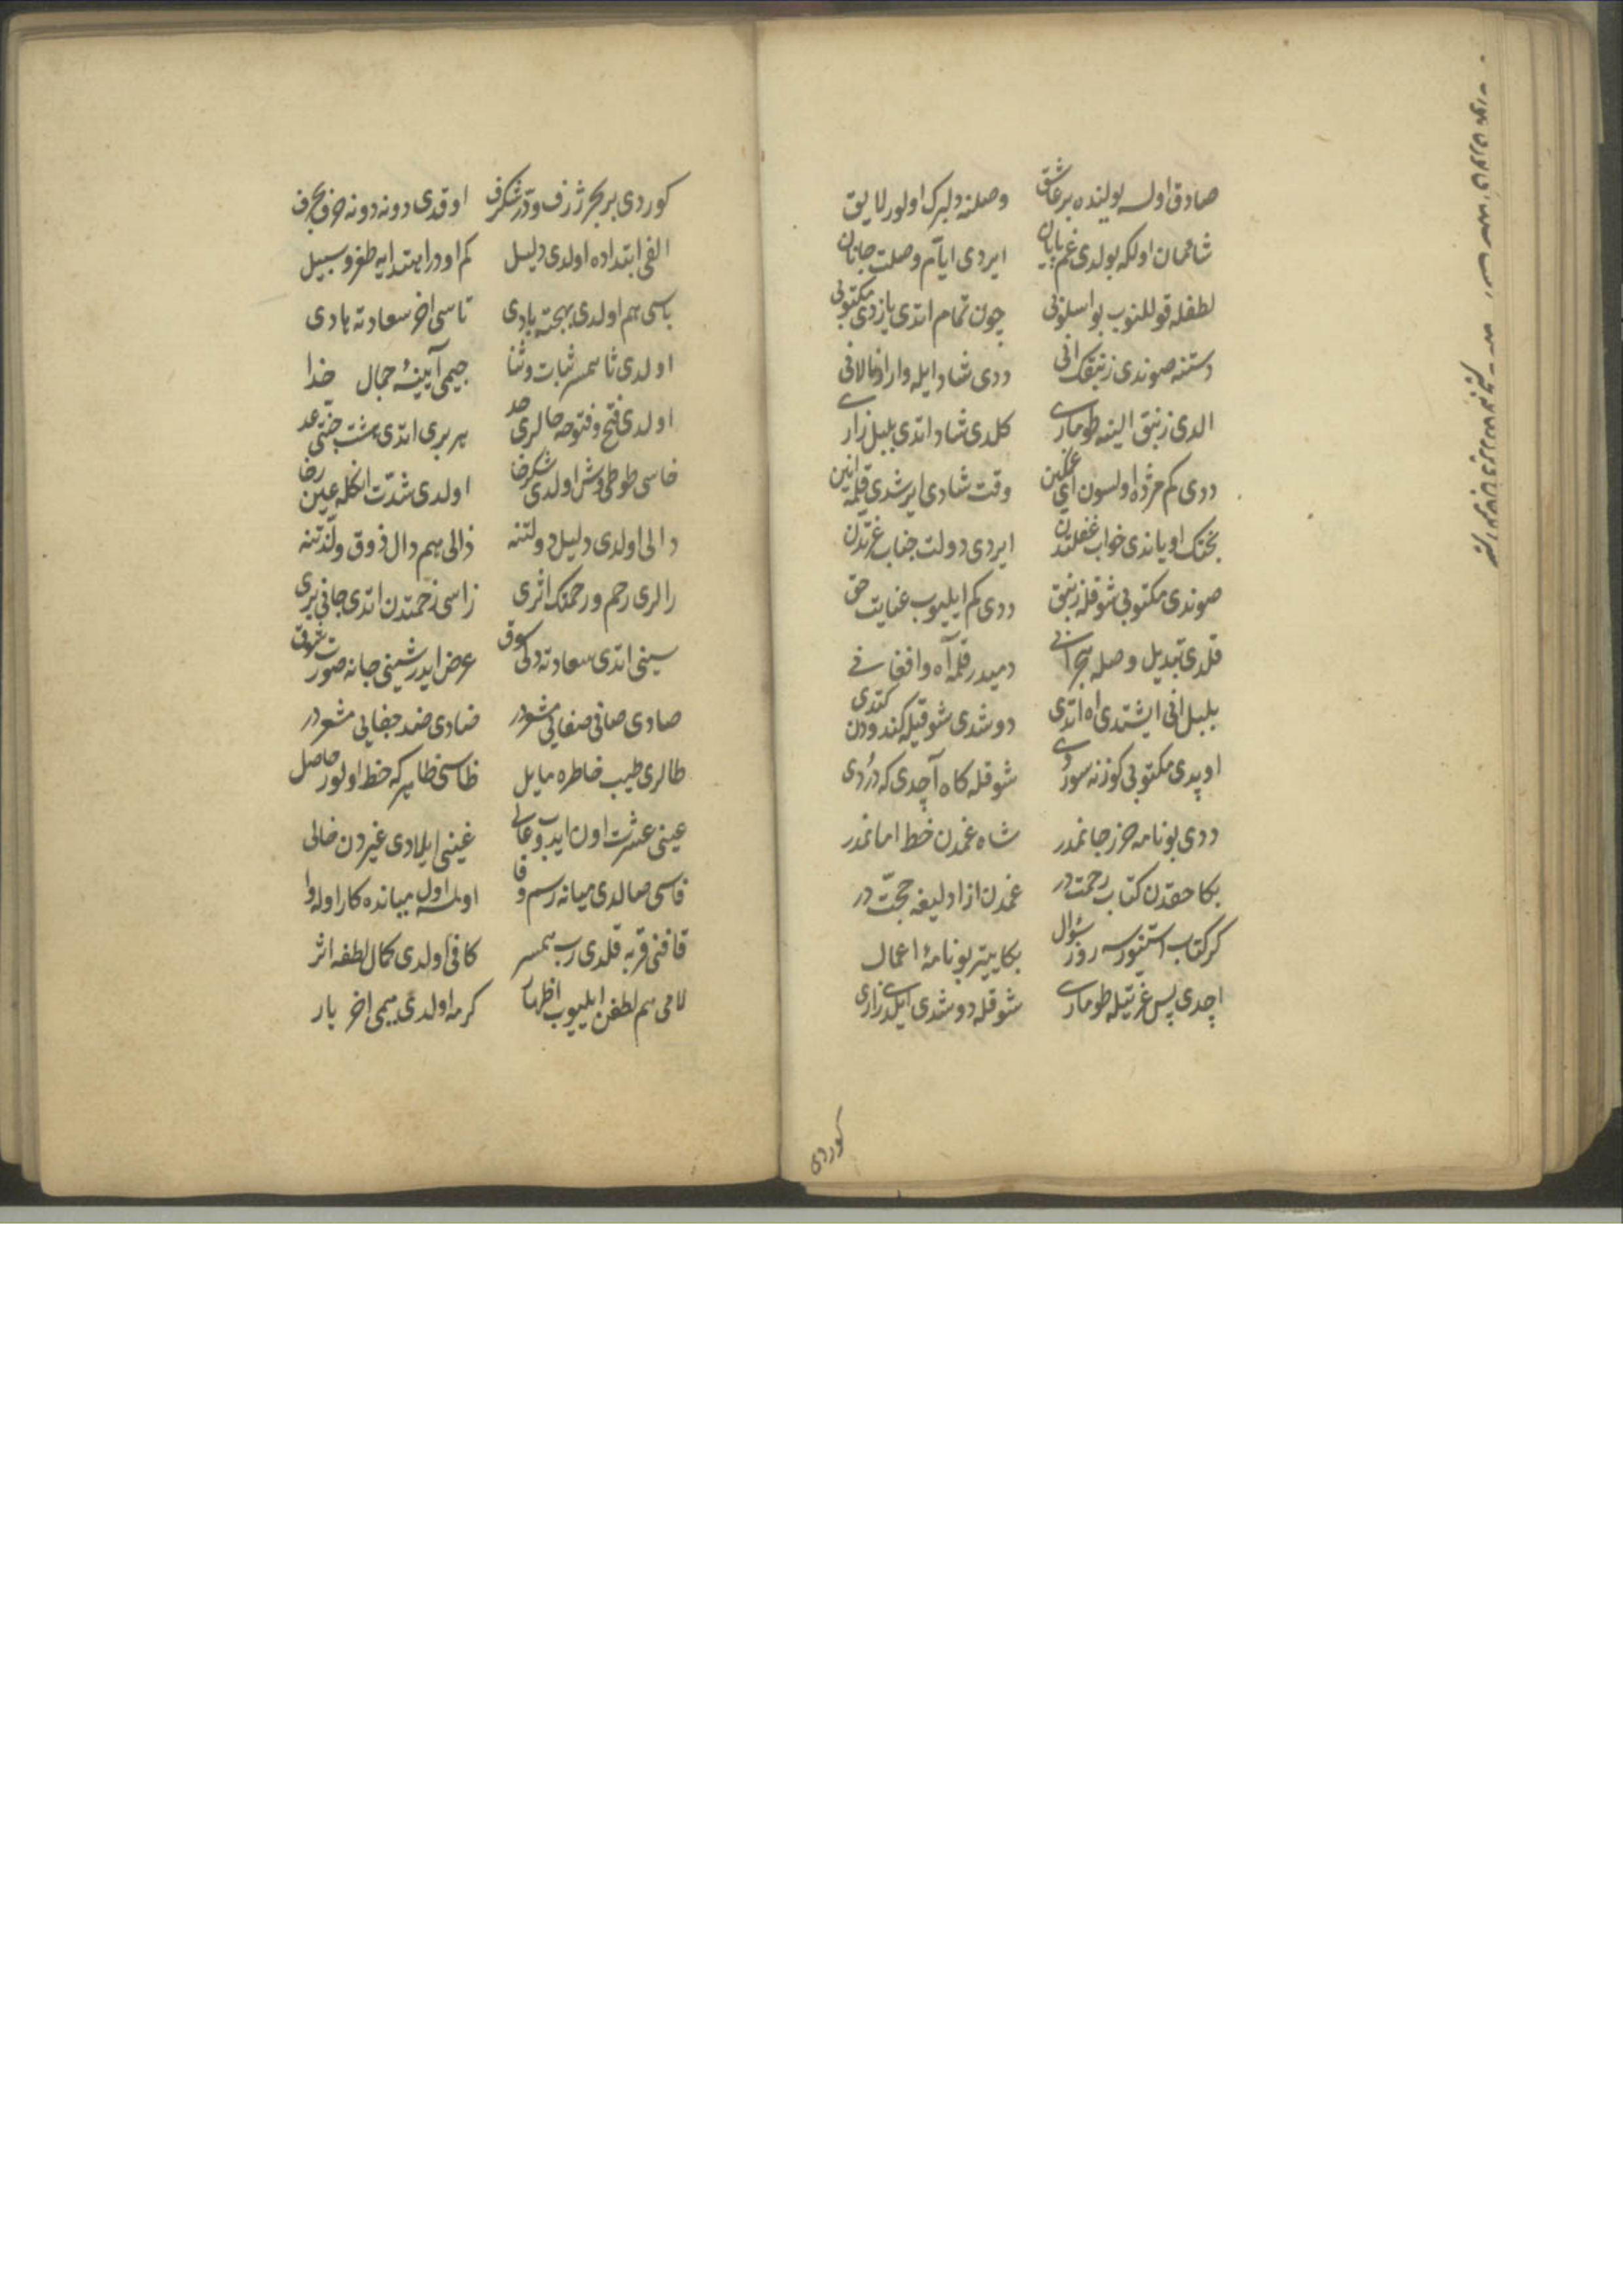 صادق اولسه یولینده بر عاشق وصلنه دلبرک اولور لایق
شادمان اول که بولدی غم پایان ایردی ایام وصلت جانان
لطفله قوللنوب بو اسلوبی چون تمام اتدی یازدی مکتوبی
دستنه صوندی زنبقک انی ددی شاد ایله وار اول نالانی
الدی زنبق الینه طوماری کلدی شاد اتدی بلبل زاری
ددی کم مژده اولسون ای غمکین وقت شادی ایرشدی قلمه انین
بختک اویاندی خواب غفلتدن ایردی دولت جناب عزتدن
صوندی مکتوبی شوقله زنبق ددی کم ایلیوب عنایت حق
قلدی تبدیل وصله هجرانی دمیدر قلمه آه و افغانی
بلبل انی ایشتدی اه اتدی دوشدی شوقیله کندودن کتدی
اوپدی مکتوبی کوزنه سوردی شوقله کاه آچدی که دردی
ددی بو نامه حرز جانمدر شاه غمدن خط امانمدر
بکا حقدن کتاب رحمت در غمدن ازادلیغه حجت در
کر کتاب استنورسه روز سؤال بکا یتر بو نامهٔ اعمال
اچدی پس عزتیله طوماری شوقله دوشدی ایلدی زاری
کوردی
کوردی بر بحر ژرف و در شکرف اوقدی دونه دونه حرف بحرف
الفی ابتداده اولدی دلیل کم اودر ابتدایه طغرو سبیل
باسی هم اولدی بهجته بادی تاسی اخر سعادته هادی
اولدی ثاسی ثبات و ثنا جیمی آیینهٔ جمال خدا
اولدی فتح و فتوحه حالری حد بربری اتدی هشت جنتی عد
خاسی طوطی وش اولدی شکرخا اولدی شدت انکله عین رخا
دالی اولدی دلیل دولتنه ذالی هم دال ذوق و لذتنه
رالری رحم و رحمتک اثری زاسی زحمتدن اتدی جانی بری
سینی اتدی سعادته دلی سوق عرض ایدر شینی جانه صورت شوق
صادی صافی صفایی مشعردر ضادی ضد جفایی مشعردر
طالری طیب خاطره مایل ظاسی ظاهر که حظ اولور حاصل
عینی عشرت اون ایدوب عالی غینی ایلادی غیردن خالی
فاسی صالدی میانه رسم وفا اولسه اول میانده کار اوله وا
قافنی قربه قلدی رب همسر کافی اولدی کمال لطفه اثر
لامی هم لطفن ایلیوب اظهار کرمه اولدی میمی اخر یار